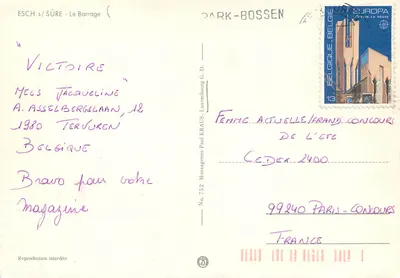 ESCH s/ SÛRE - Le Barrage
PARK-BOSSEN
BELGIQUE-BELGIË
EUROPA
13
"VICTOIRE"
MELS JACQUELINE
A. ASSELBERGSLAAN, 12
1980 TERVUREN
BELGIQUE
Bravo pour votre
magazine
No. 752 Messageries Paul KRAUS, Luxembourg G. D.
FEMME ACTUELLE/GRAND CONCOURS
DE L'ÉTÉ
CEDEX 2400
99240 PARIS-CONCOURS
FRANCE
Reproduction interdite